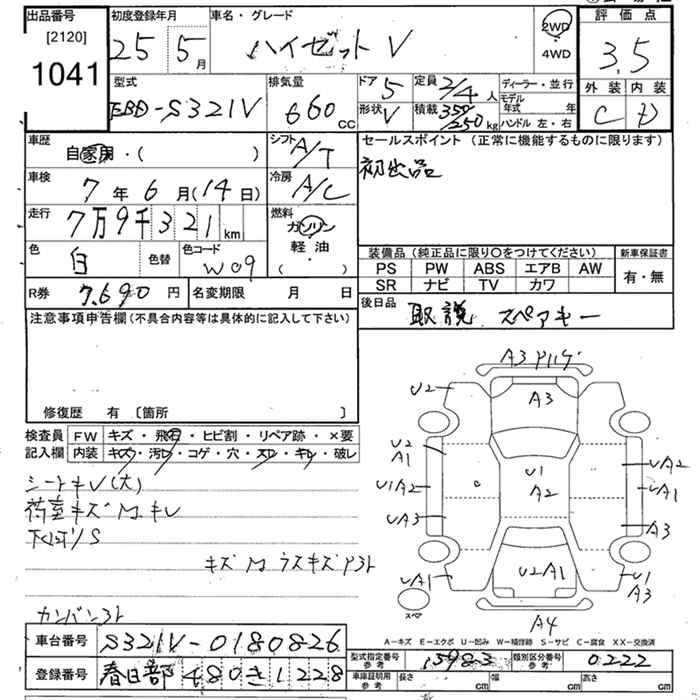 出品番号
[2120]
1041
初度登録年月
25 5月
車名・グレード
ハイゼット V
2WD
4WD
評価点
3.5
外装 内装
C D
型式
EBD-S321V
排気量
660 CC
ドア 5
形状 V
定員 2/4 人
積載 350/250 kg
ディーラー・並行
モデル年式 年
ハンドル 左・右
車歴
自家用・( )
シフト
A/T
セールスポイント (正常に機能するものに限ります)
初出品
車検
7年6月(14日)
冷房
A/C
走行
7万9千321km
燃料
ガソリン
軽・油
( ・ )
色
白
色替
色コード
W09
装備品 (純正品に限り○をつけてください)
PS PW ABS エアB AW
SR ナビ TV カワ
新車保証書
有・無
R券 7,690円
名変期限 月 日
後日品
取説 スペアキー
注意事項申告欄(不具合内容等は具体的に記入して下さい)
修復歴 有 〔箇所 〕
検査員記入欄
FW キズ・飛石・ヒビ割・リペア跡・×要
内装 キズ・汚レ・コゲ・穴・スレ・キレ・破レ
シートキレ(大)
荷室キズ M キレ
下回り S
キズ M ラスキズ
車台番号
S321V-0180826
登録番号
春日部 480 き 1228
A3
A3
U2
U2
A1
U1A2
UA3
UA1
U1
A2
UA2
UA1
A3
U2A1
U1
A3
A4
スペア
A-キズ E-エクボ U-凹み W-補修跡 S-サビ C-腐食 XX-交換済
型式指定番号
参考
15983
類別区分番号
参考
0222
車庫証明用
参考
長さ cm
幅 cm
高さ cm